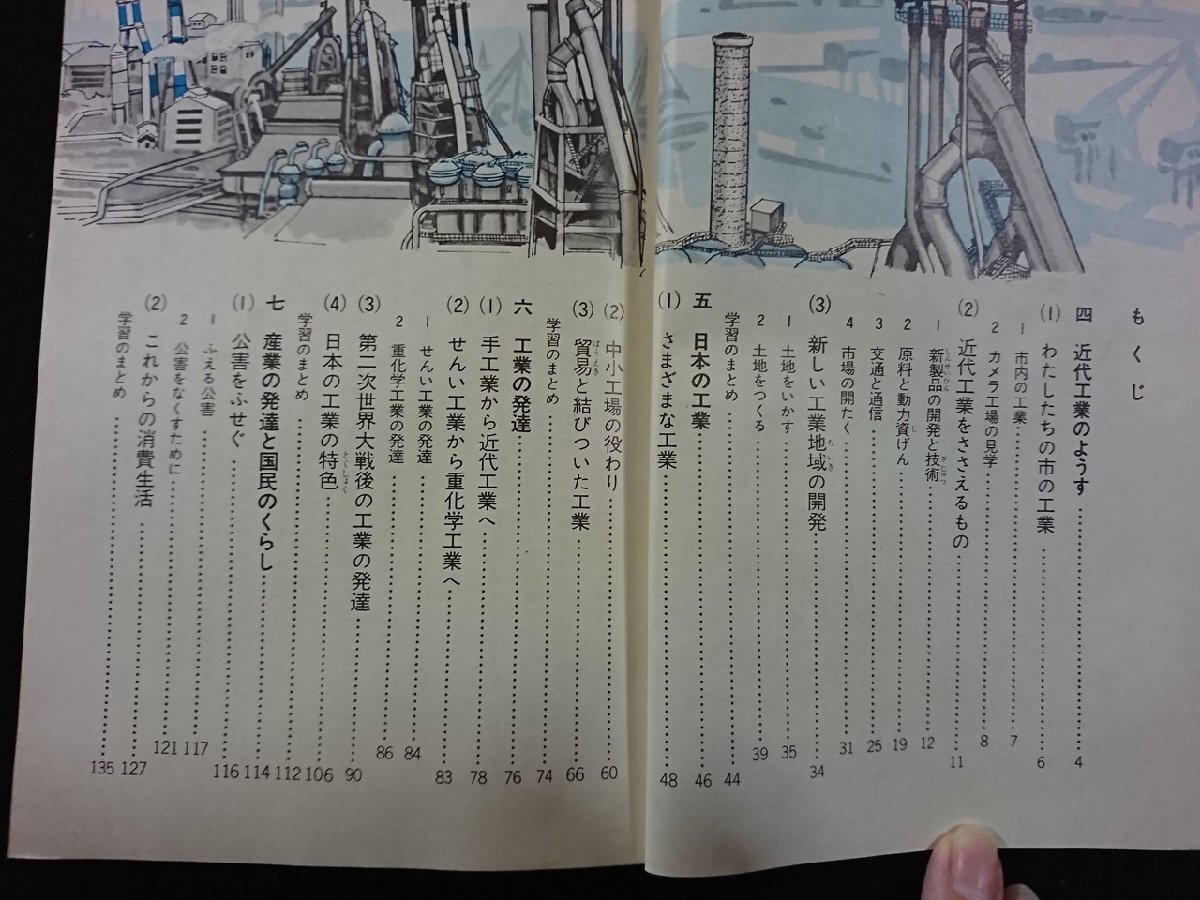 もくじ
四 近代工業のようす……4
(1) わたしたちの市の工業……6
1 市内の工業……7
2 カメラ工場の見学……8
(2) 近代工業をささえるもの……11
1 新製品の開発と技術……12
2 原料と動力資げん……19
3 交通と通信……25
4 市場の開たく……31
(3) 新しい工業地域の開発……34
1 土地をいかす……35
2 土地をつくる……39
学習のまとめ……44
五 日本の工業……46
(1) さまざまな工業……48
(2) 中小工場の役わり……60
(3) 貿易と結びついた工業……66
学習のまとめ……74
六 工業の発達……76
(1) 手工業から近代工業へ……78
(2) せんい工業から重化学工業へ……83
1 せんい工業の発達……84
2 重化学工業の発達……86
(3) 第二次世界大戦後の工業の発達……90
(4) 日本の工業の特色……106
学習のまとめ……112
七 産業の発達と国民のくらし……114
(1) 公害をふせぐ……116
1 ふえる公害……117
2 公害をなくすために……121
(2) これからの消費生活……127
学習のまとめ……135